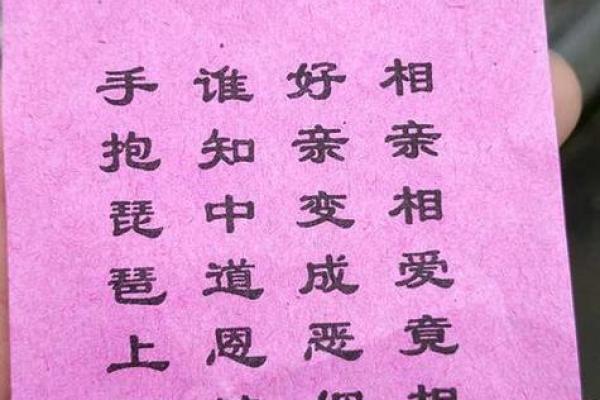 相亲相爱竟相
好亲变成恶
谁知中道恩
手抱琵琶上